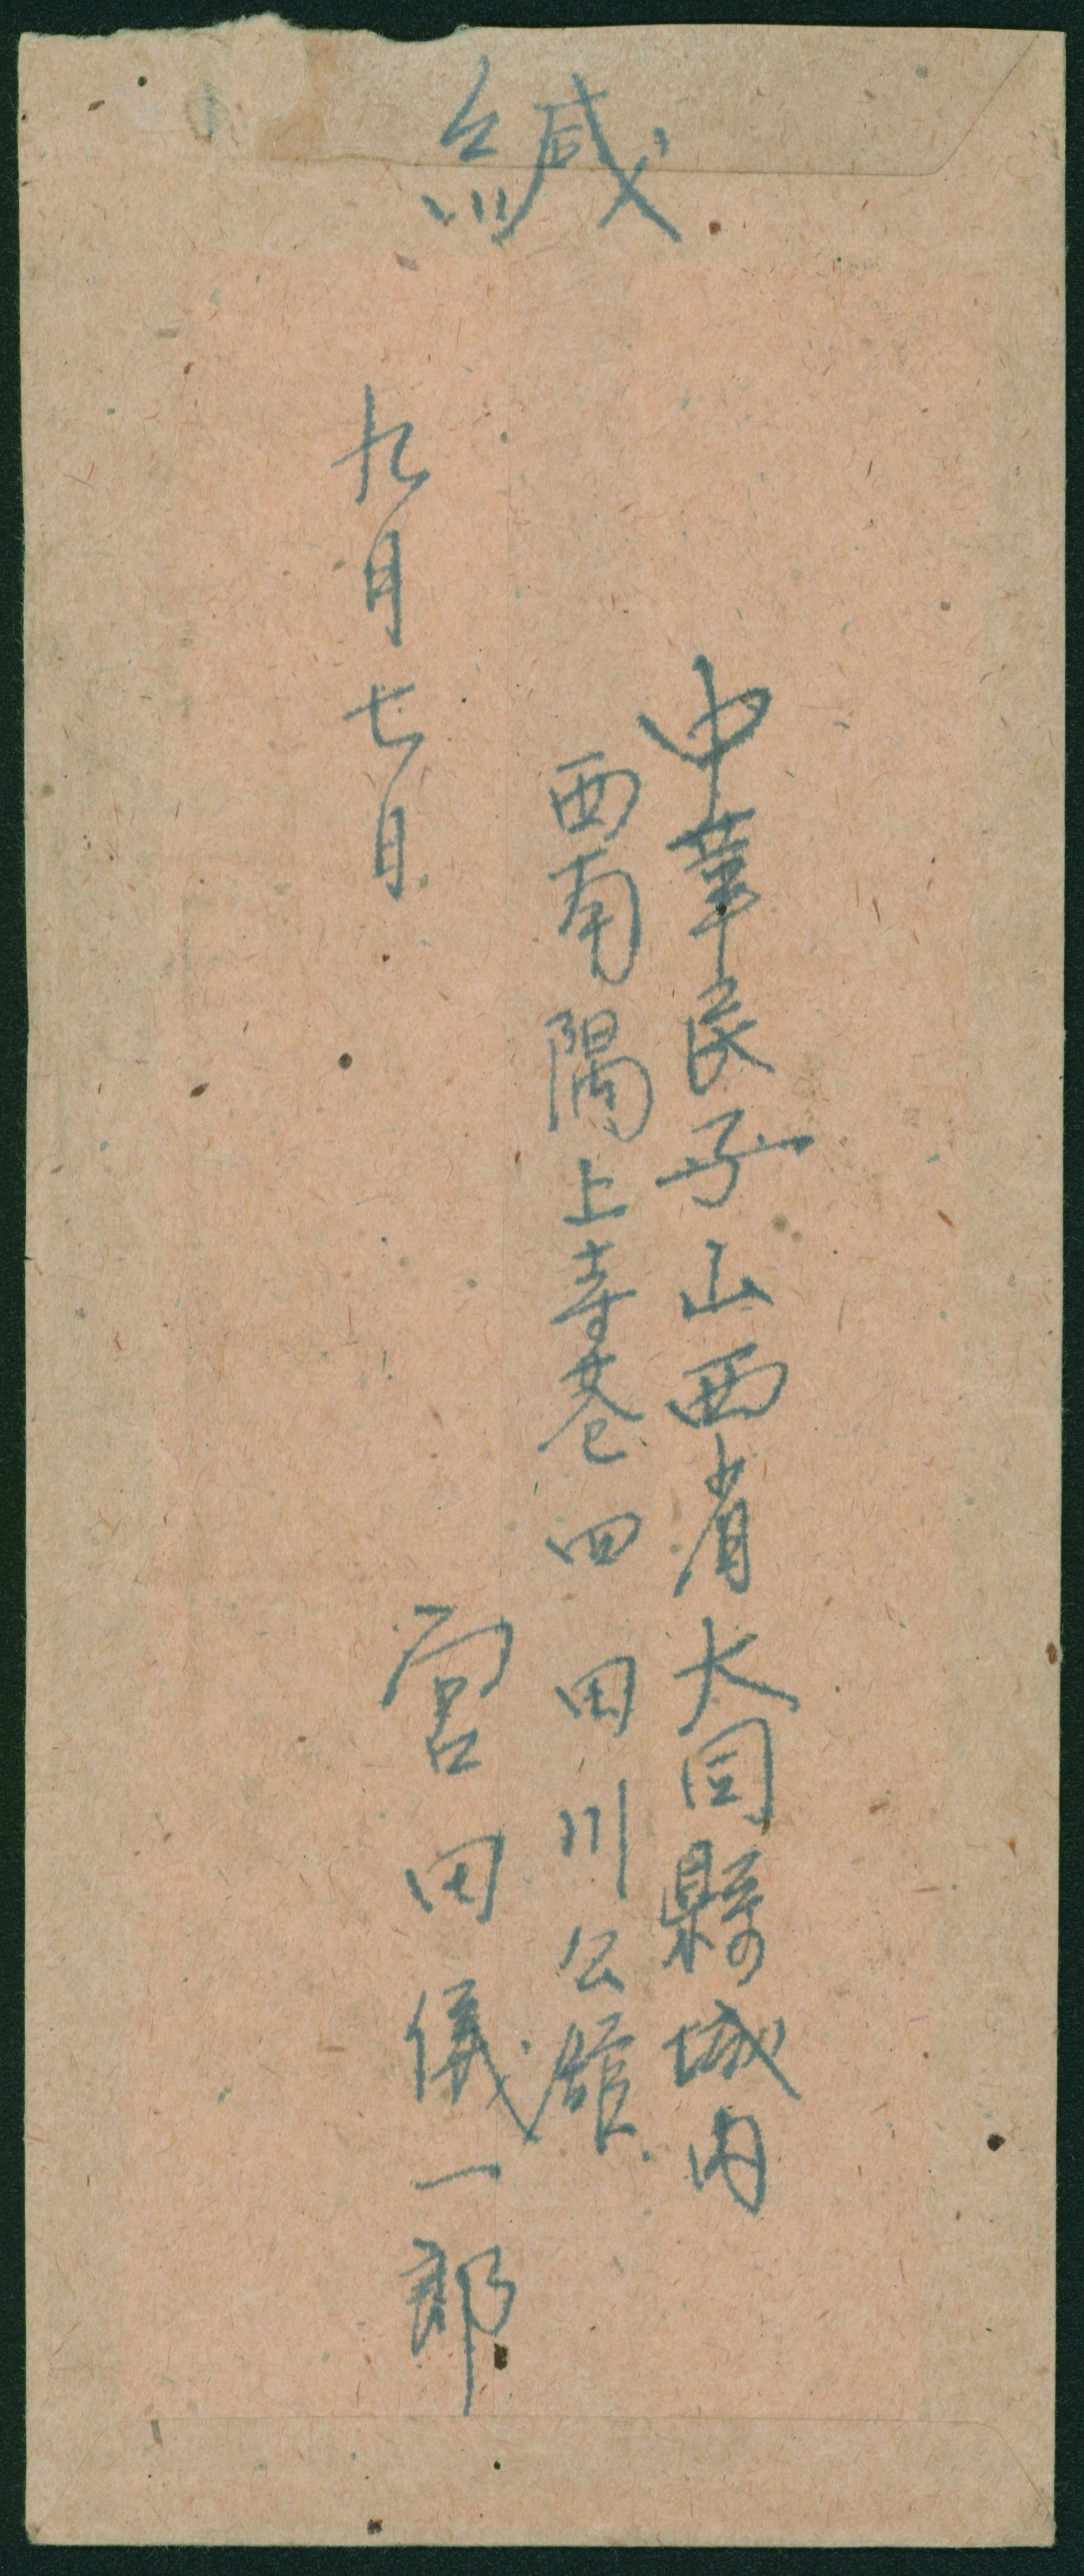 緘
中華民國山西省大同縣城内
西南隅上寺巷四 田川公館
九月七日
宮田儀一郎